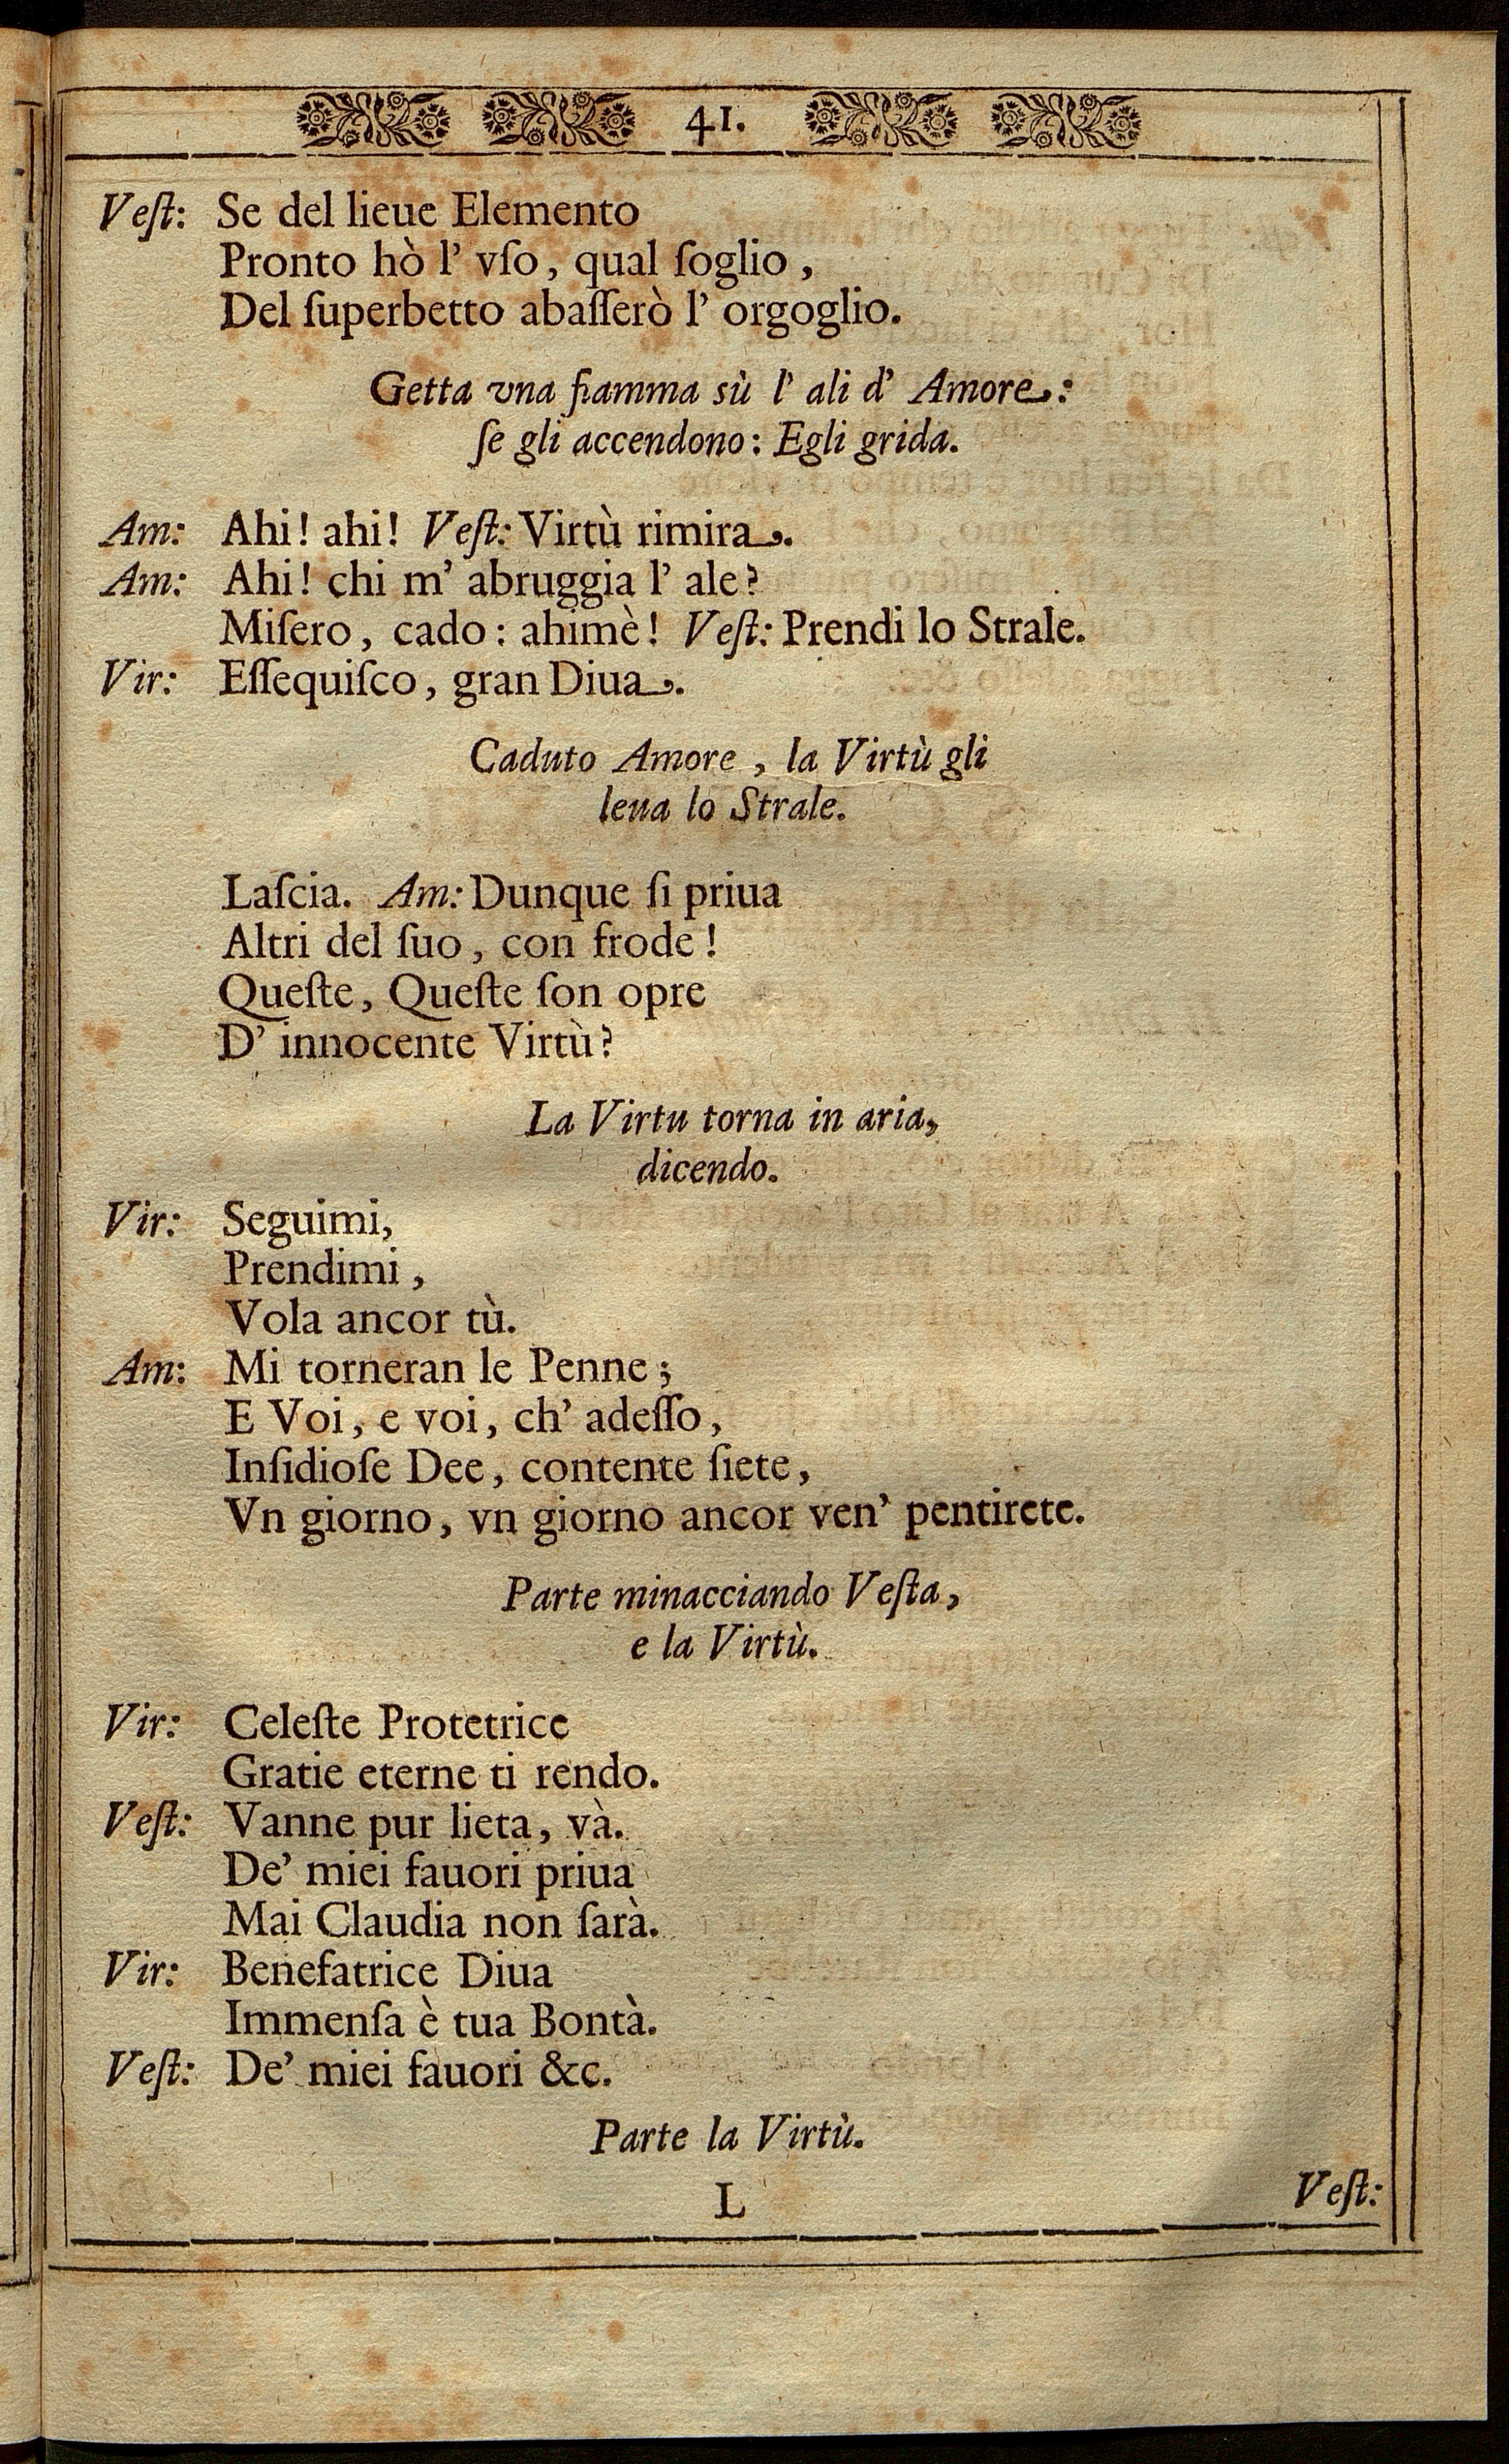 41.
Veſt: Se del lieue Elemento
Pronto hò l' vſo, qual ſoglio,
Del ſuperbetto abaſſerò l' orgoglio.
Getta vna fiamma sù l' ali d' Amore:
ſe gli accendono: Egli grida.
Am: Ahi! ahi! Veſt: Virtù rimira.
Am: Ahi! chi m' abruggia l' ale?
Miſero, cado: ahimè! Veſt: Prendi lo Strale.
Vir: Eſſequiſco, gran Diua.
Caduto Amore, la Virtù gli
leua lo Strale.
Laſcia. Am: Dunque ſi priua
Altri del ſuo, con frode!
Queſte, Queſte ſon opre
D' innocente Virtù?
La Virtu torna in aria,
dicendo.
Vir: Seguimi,
Prendimi,
Vola ancor tù.
Am: Mi torneran le Penne;
E Voi, e voi, ch' adeſſo,
Inſidioſe Dee, contente ſiete,
Vn giorno, vn giorno ancor ven' pentirete.
Parte minacciando Veſta,
e la Virtù.
Vir: Celeſte Protetrice
Gratie eterne ti rendo.
Veſt: Vanne pur lieta, và.
De' miei fauori priua
Mai Claudia non ſarà.
Vir: Benefatrice Diua
Immenſa è tua Bontà.
Veſt: De' miei fauori &c.
Parte la Virtù.
L
Veſt: